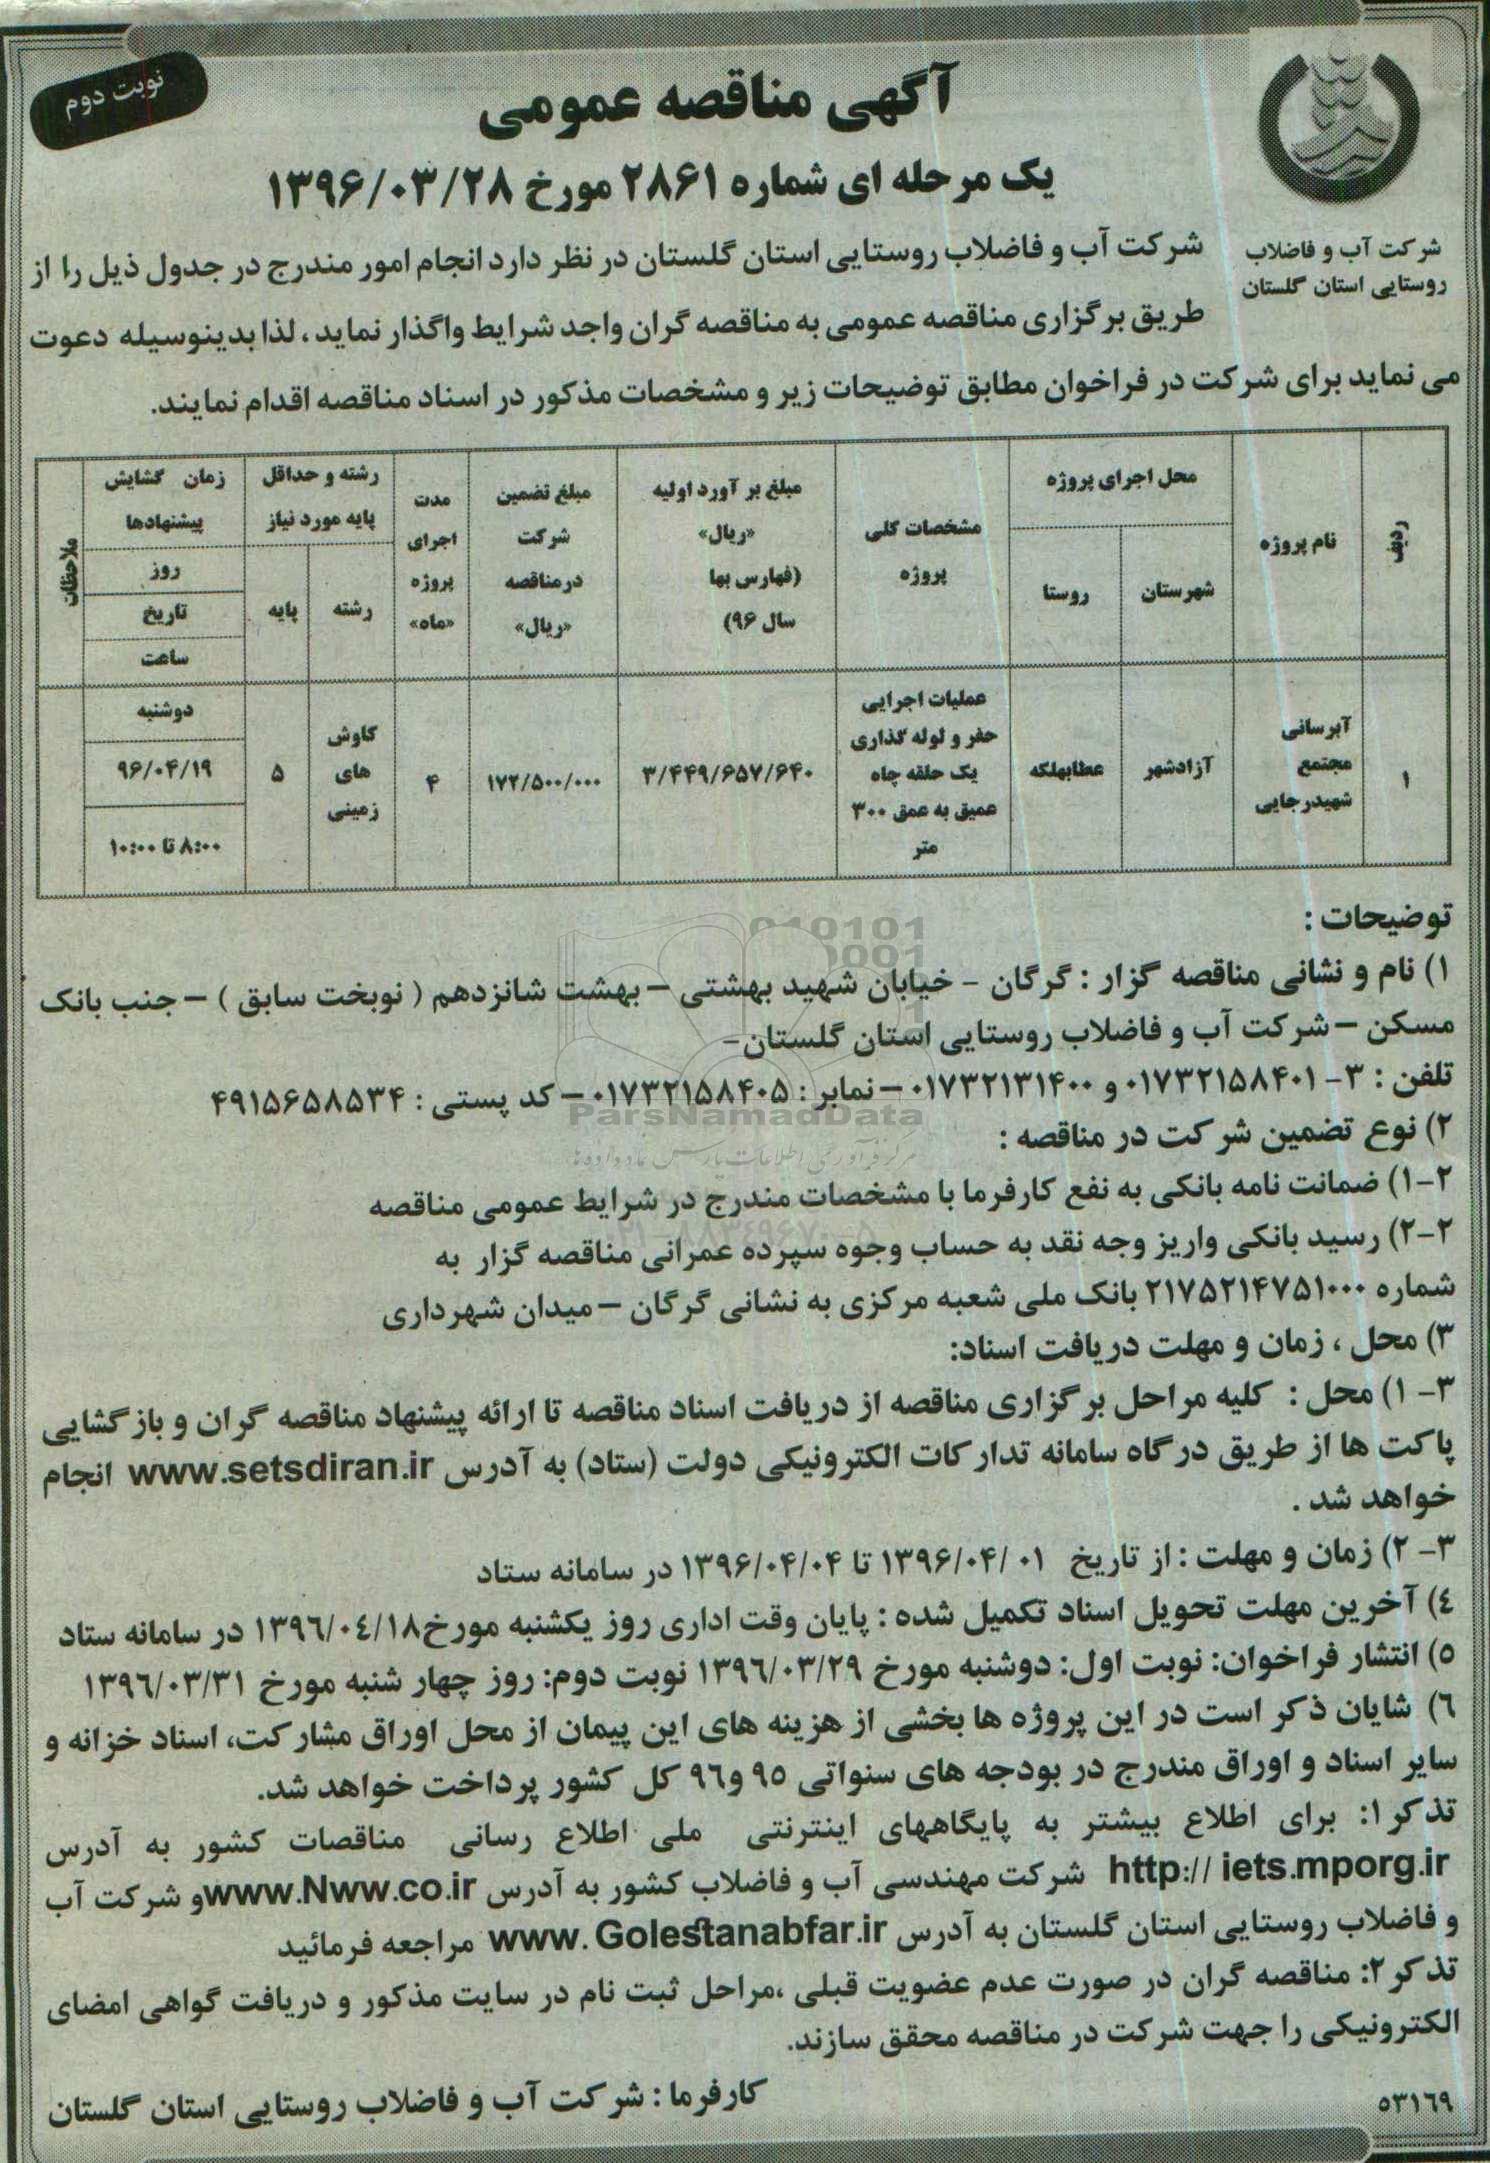 نوبت دوم
آگهی مناقصه عمومی
یک مرحله ای شماره ۲۸۶۱ مورخ ۱۳۹۶/۰۳/۲۸
شرکت آب و فاضلاب
روستایی استان گلستان
شرکت آب و فاضلاب روستایی استان گلستان در نظر دارد انجام امور مندرج در جدول ذیل را از
طریق برگزاری مناقصه عمومی به مناقصه گران واجد شرایط واگذار نماید ، لذا بدینوسیله دعوت
می نماید برای شرکت در فراخوان مطابق توضیحات زیر و مشخصات مذکور در اسناد مناقصه اقدام نمایند.
ردیف
نام پروژه
محل اجرای پروژه
شهرستان
روستا
مشخصات کلی
پروژه
مبلغ بر آورد اولیه
«ریال»
(فهارس بها
سال ۹۶)
مبلغ تضمین
شرکت
درمناقصه
«ریال»
مدت
اجرای
پروژه
«ماه»
رشته و حداقل
پایه مورد نیاز
رشته
پایه
زمان گشایش
پیشنهادها
روز
تاریخ
ساعت
ملاحظات
۱
آبرسانی
مجتمع
شهیدرجایی
آزادشهر
عطابهلکه
عملیات اجرایی
حفر و لوله گذاری
یک حلقه چاه
عمیق به عمق ۳۰۰
متر
۳/۴۴۹/۶۵۷/۶۴۰
۱۷۲/۵۰۰/۰۰۰
۴
کاوش
های
زمینی
۵
دوشنبه
۹۶/۰۴/۱۹
۸:۰۰ تا ۱۰:۰۰
توضیحات :
۱) نام و نشانی مناقصه گزار : گرگان - خیابان شهید بهشتی – بهشت شانزدهم ( نوبخت سابق ) – جنب بانک
مسکن – شرکت آب و فاضلاب روستایی استان گلستان-
تلفن : ۳- ۰۱۷۳۲۱۵۸۴۰۱ و ۰۱۷۳۲۱۳۱۴۰۰ – نمابر : ۰۱۷۳۲۱۵۸۴۰۵ – کد پستی : ۴۹۱۵۶۵۸۵۳۴
ParsNamadData
۲) نوع تضمین شرکت در مناقصه :
۲-۱) ضمانت نامه بانکی به نفع کارفرما با مشخصات مندرج در شرایط عمومی مناقصه
۲-۲) رسید بانکی واریز وجه نقد به حساب وجوه سپرده عمرانی مناقصه گزار به
شماره ۲۱۷۵۲۱۴۷۵۱۰۰۰ بانک ملی شعبه مرکزی به نشانی گرگان – میدان شهرداری
۳) محل ، زمان و مهلت دریافت اسناد:
۳- ۱) محل : کلیه مراحل برگزاری مناقصه از دریافت اسناد مناقصه تا ارائه پیشنهاد مناقصه گران و بازگشایی
پاکت ها از طریق درگاه سامانه تدارکات الکترونیکی دولت (ستاد) به آدرس www.setsdiran.ir انجام
خواهد شد .
۳- ۲) زمان و مهلت : از تاریخ ۱۳۹۶/۰۴/۰۱ تا ۱۳۹۶/۰۴/۰۴ در سامانه ستاد
٤) آخرین مهلت تحویل اسناد تکمیل شده : پایان وقت اداری روز یکشنبه مورخ ۱۳۹٦/۰٤/۱۸ در سامانه ستاد
٥) انتشار فراخوان: نوبت اول: دوشنبه مورخ ۱۳۹٦/۰۳/۲۹ نوبت دوم: روز چهار شنبه مورخ ۱۳۹٦/۰۳/۳۱
٦) شایان ذکر است در این پروژه ها بخشی از هزینه های این پیمان از محل اوراق مشارکت، اسناد خزانه و
سایر اسناد و اوراق مندرج در بودجه های سنواتی ۹۵ و ۹٦ کل کشور پرداخت خواهد شد.
تذکر۱: برای اطلاع بیشتر به پایگاههای اینترنتی ملی اطلاع رسانی مناقصات کشور به آدرس
http:// iets.mporg.ir شرکت مهندسی آب و فاضلاب کشور به آدرس www.Nww.co.ir و شرکت آب
و فاضلاب روستایی استان گلستان به آدرس www. Golestanabfar.ir مراجعه فرمائید
تذکر۲: مناقصه گران در صورت عدم عضویت قبلی ،مراحل ثبت نام در سایت مذکور و دریافت گواهی امضای
الکترونیکی را جهت شرکت در مناقصه محقق سازند.
کارفرما : شرکت آب و فاضلاب روستایی استان گلستان
٥٣١٦٩